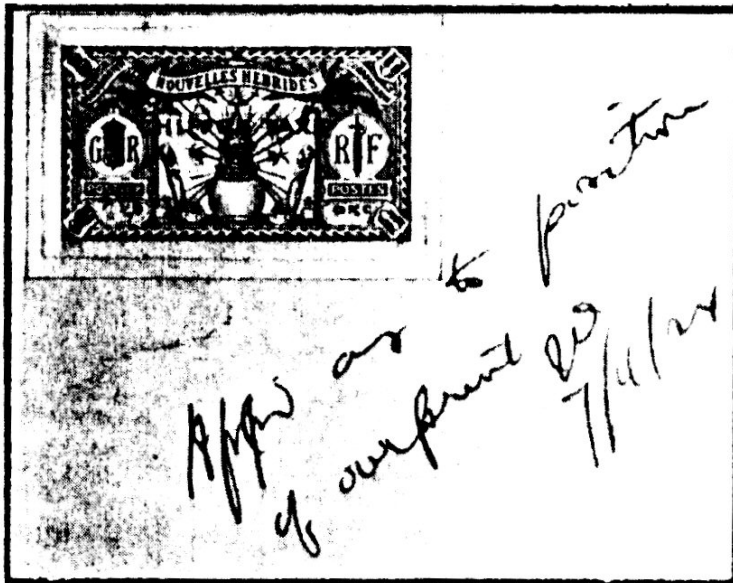 NOUVELLES HEBRIDES
G R
R F
POSTES
POSTES
as to position
of overprint
7/11/24